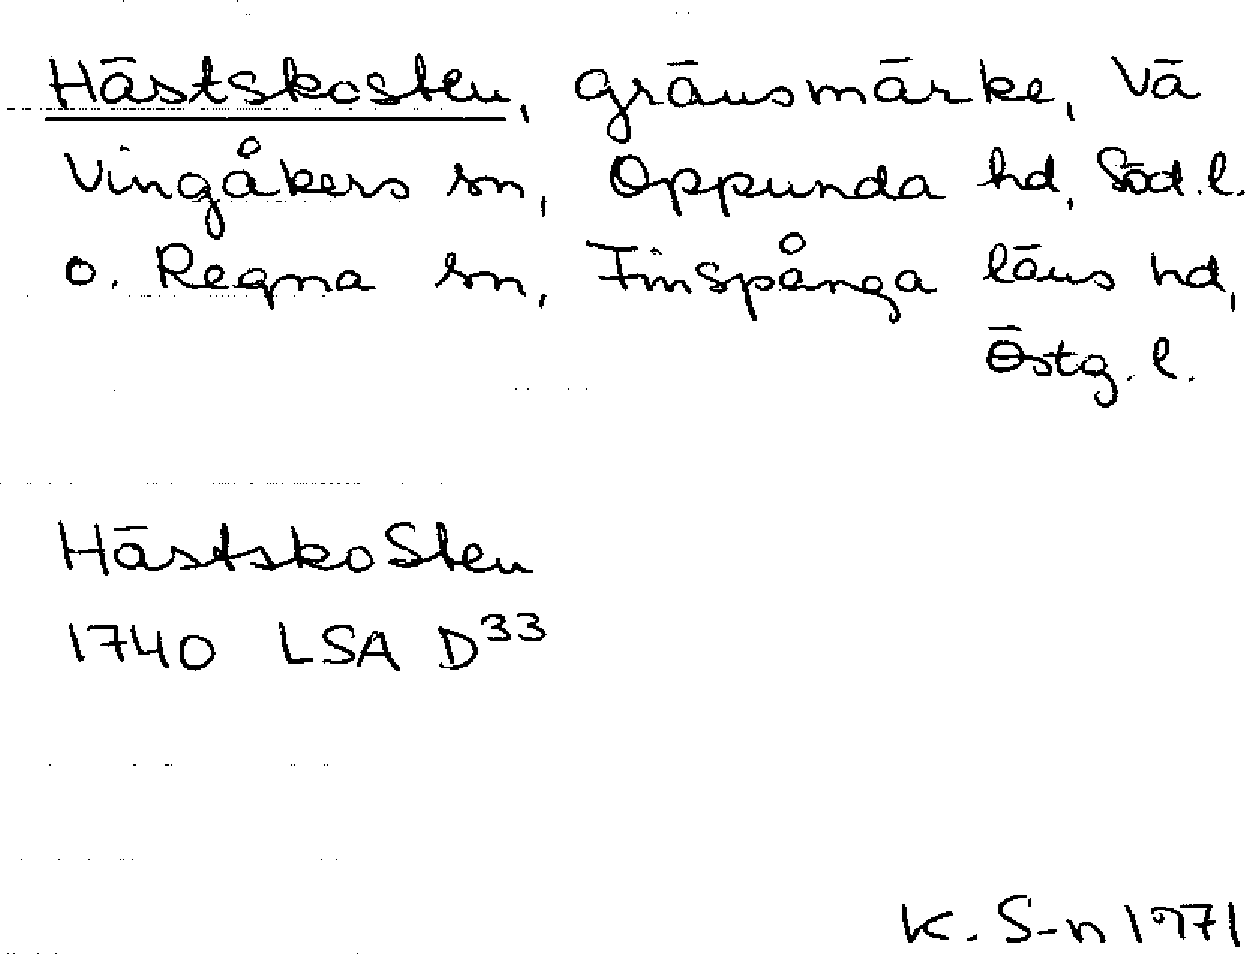 Hästskosten, gränsmärke, Vä
Vingåkers sn, Oppunda hd, Söd. l.
o. Regna sn, Finspånga läns hd,
Östg. l.
HästskoSten
1740 LSA D³³
K. S-n 1971